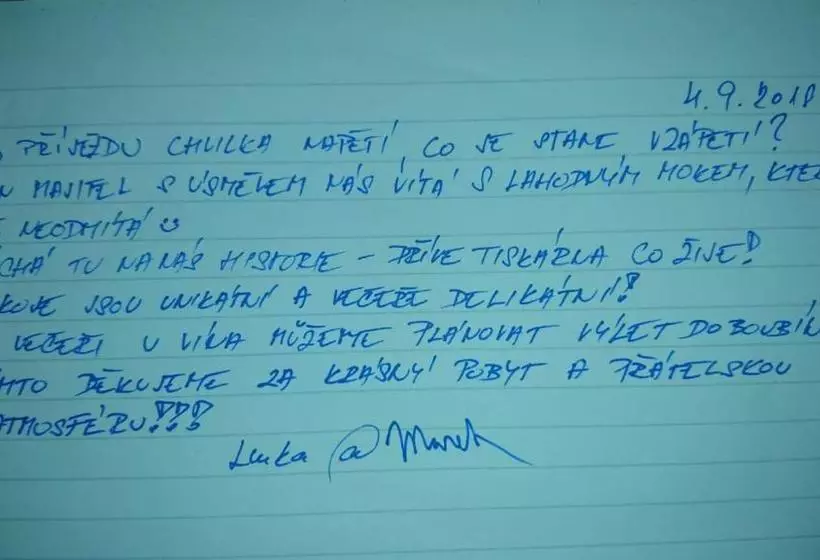 4.9.2018
PŘÍJEZDU CHVILKA NAPĚTÍ, CO SE STANE VZÁPĚTÍ?
MAJITEL S ÚSMĚVEM NÁS VÍTÁ S LAHODNÝM MOKEM, KTE
NEODMÍTÁ
CHÁ TU NA NÁS HISTORIE - DŘÍVE TISKÁRNA CO ŽIJE!
KOJE JSOU UNIKÁTNÍ A VEČEŘE DELIKÁTNÍ!
VEČEŘI U VÍNA MŮŽEME PLÁNOVAT VÝLET DO BOUBÍN
MTO DĚKUJEME ZA KRÁSNÝ POBYT A PŘÁTELSKOU
ATMOSFÉRU!!!
Lenka @ Marek